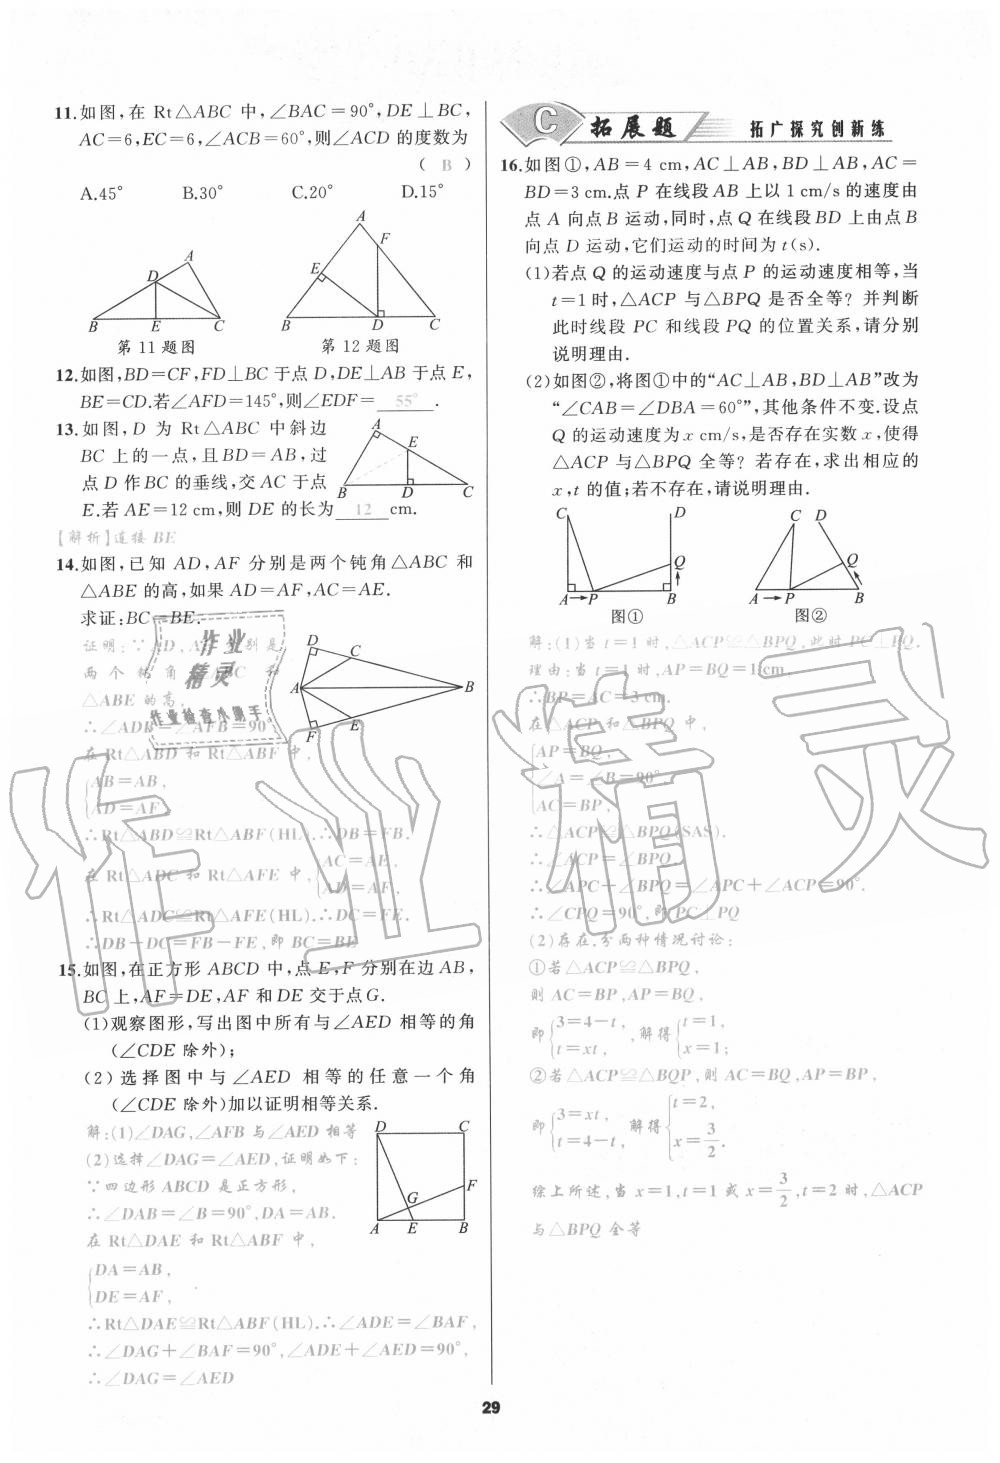 11.如图,在 Rt△ABC 中,∠BAC=90°,DE⊥BC,
AC=6,EC=6,∠ACB=60°,则∠ACD 的度数为
( B )
A.45° B.30° C.20° D.15°
A
D
B E C
第 11 题图
A
F
E
B D C
第 12 题图
12.如图,BD=CF,FD⊥BC 于点 D,DE⊥AB 于点 E,
BE=CD.若∠AFD=145°,则∠EDF= 55° .
13.如图,D 为 Rt△ABC 中斜边
BC 上的一点,且 BD=AB,过
点 D 作 BC 的垂线,交 AC 于点
E.若 AE=12 cm,则 DE 的长为 12 cm.
A
E
B D C
【解析】连接 BE
14.如图,已知 AD,AF 分别是两个钝角△ABC 和
△ABE 的高,如果 AD=AF,AC=AE.
求证:BC=BE.
证明:∵AD,AF 分别是
两个钝角△ABC 和
△ABE 的高,
∴∠ADB=∠AFB=90°
在 Rt△ABD 和 Rt△ABF 中,
AB=AB,
AD=AF,
∴Rt△ABD≌Rt△ABF(HL).∴DB=FB.
在 Rt△ADC 和 Rt△AFE 中,
AC=AE,
AD=AF,
∴Rt△ADC≌Rt△AFE(HL).∴DC=FE.
∴DB-DC=FB-FE,即 BC=BE
D
C
A
B
F
E
作业
精灵
作业检查小助手
15.如图,在正方形 ABCD 中,点 E,F 分别在边 AB,
BC 上,AF=DE,AF 和 DE 交于点 G.
(1)观察图形,写出图中所有与∠AED 相等的角
(∠CDE 除外);
(2)选择图中与∠AED 相等的任意一个角
(∠CDE 除外)加以证明相等关系.
解:(1)∠DAG,∠AFB 与∠AED 相等
(2)选择∠DAG=∠AED,证明如下:
∵四边形 ABCD 是正方形,
∴∠DAB=∠B=90°,DA=AB.
在 Rt△DAE 和 Rt△ABF 中,
DA=AB,
DE=AF,
∴Rt△DAE≌Rt△ABF(HL).∴∠ADE=∠BAF,
∴∠DAG+∠BAF=90°,∠ADE+∠AED=90°,
∴∠DAG=∠AED
D C
F
G
A E B
C 拓展题 拓广探究创新练
16.如图①,AB=4 cm,AC⊥AB,BD⊥AB,AC=
BD=3 cm.点 P 在线段 AB 上以 1 cm/s 的速度由
点 A 向点 B 运动,同时,点 Q 在线段 BD 上由点 B
向点 D 运动,它们运动的时间为 t(s).
(1)若点 Q 的运动速度与点 P 的运动速度相等,当
t=1 时,△ACP 与△BPQ 是否全等?并判断
此时线段 PC 和线段 PQ 的位置关系,请分别
说明理由.
(2)如图②,将图①中的“AC⊥AB,BD⊥AB”改为
“∠CAB=∠DBA=60°”,其他条件不变.设点
Q 的运动速度为 x cm/s,是否存在实数 x,使得
△ACP 与△BPQ 全等?若存在,求出相应的
x,t 的值;若不存在,请说明理由.
C D
Q
A P B
图①
C D
Q
A P B
图②
解:(1)当 t=1 时,△ACP≌△BPQ,此时 PC⊥PQ.
理由:当 t=1 时,AP=BQ=1 cm,
∴BP=AC=3 cm.
在△ACP 和△BPQ 中,
AP=BQ,
∠A=∠B=90°,
AC=BP,
∴△ACP≌△BPQ(SAS).
∴∠ACP=∠BPQ.
∴∠APC+∠BPQ=∠APC+∠ACP=90°.
∴∠CPQ=90°,即 PC⊥PQ
(2)存在.分两种情况讨论:
①若△ACP≌△BPQ,
则 AC=BP,AP=BQ,
即 3=4-t, t=xt, 解得 t=1, x=1;
②若△ACP≌△BQP,则 AC=BQ,AP=BP,
即 3=xt, t=4-t, 解得 t=2, x=3/2.
综上所述,当 x=1,t=1 或 x=3/2,t=2 时,△ACP
与△BPQ 全等
作业精灵
29